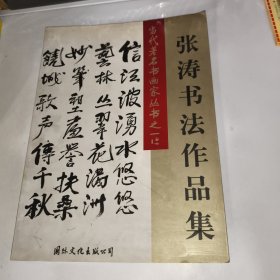 张涛书法作品集
当代著名书画家丛书之一
信江波涌水悠悠
艺林丛翠花满洲
妙笔誉扶桑
饶城歌声传千秋
国际文化出版公司